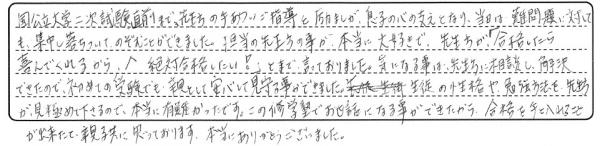 国公立大学二次試験直前まで、先生方の手あつい ご指導と励ましが、息子の心の支えとなり、当日は、難問題に対して
も、集中し落ちついてのぞむことができました。担当の先生方の事が、本当に大好きで、先生方が「合格したら
喜んでくれるから、絶対合格したい!!」とまで言っておりました。気になる事は、先生方に相談し、解決
できたので、初めての受験でも、親として安心して見守る事ができました。生徒の性格や勉強方法を、先生が
が、見極めて下さるので、本当に有難かったです。この修学塾でお世話になる事ができたから、合格を手に入れること
が出来たと、親子共に思っております。本当にありがとうございました。